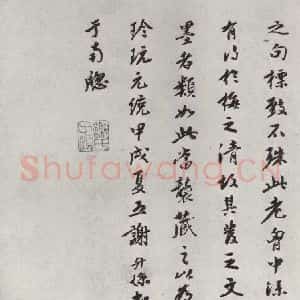 之句標致不殊此老胷中深
有得於梅之清故其發之文
墨者類如此當襲藏之以為
珍玩元統甲戌夏五謝升孫書
于南牕
Shufawang.CN